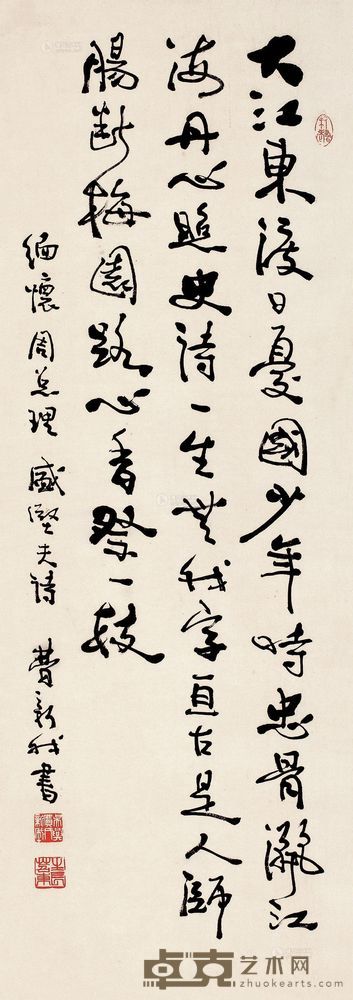 大江東渡日憂國少年時忠骨灑江
海丹心照史詩一生無我字亘古是人師
腸斷梅園路心香祭一枝
緬懷周总理 盛堅夫詩 費新我書
卓克艺术网
www.zhuokearts.com